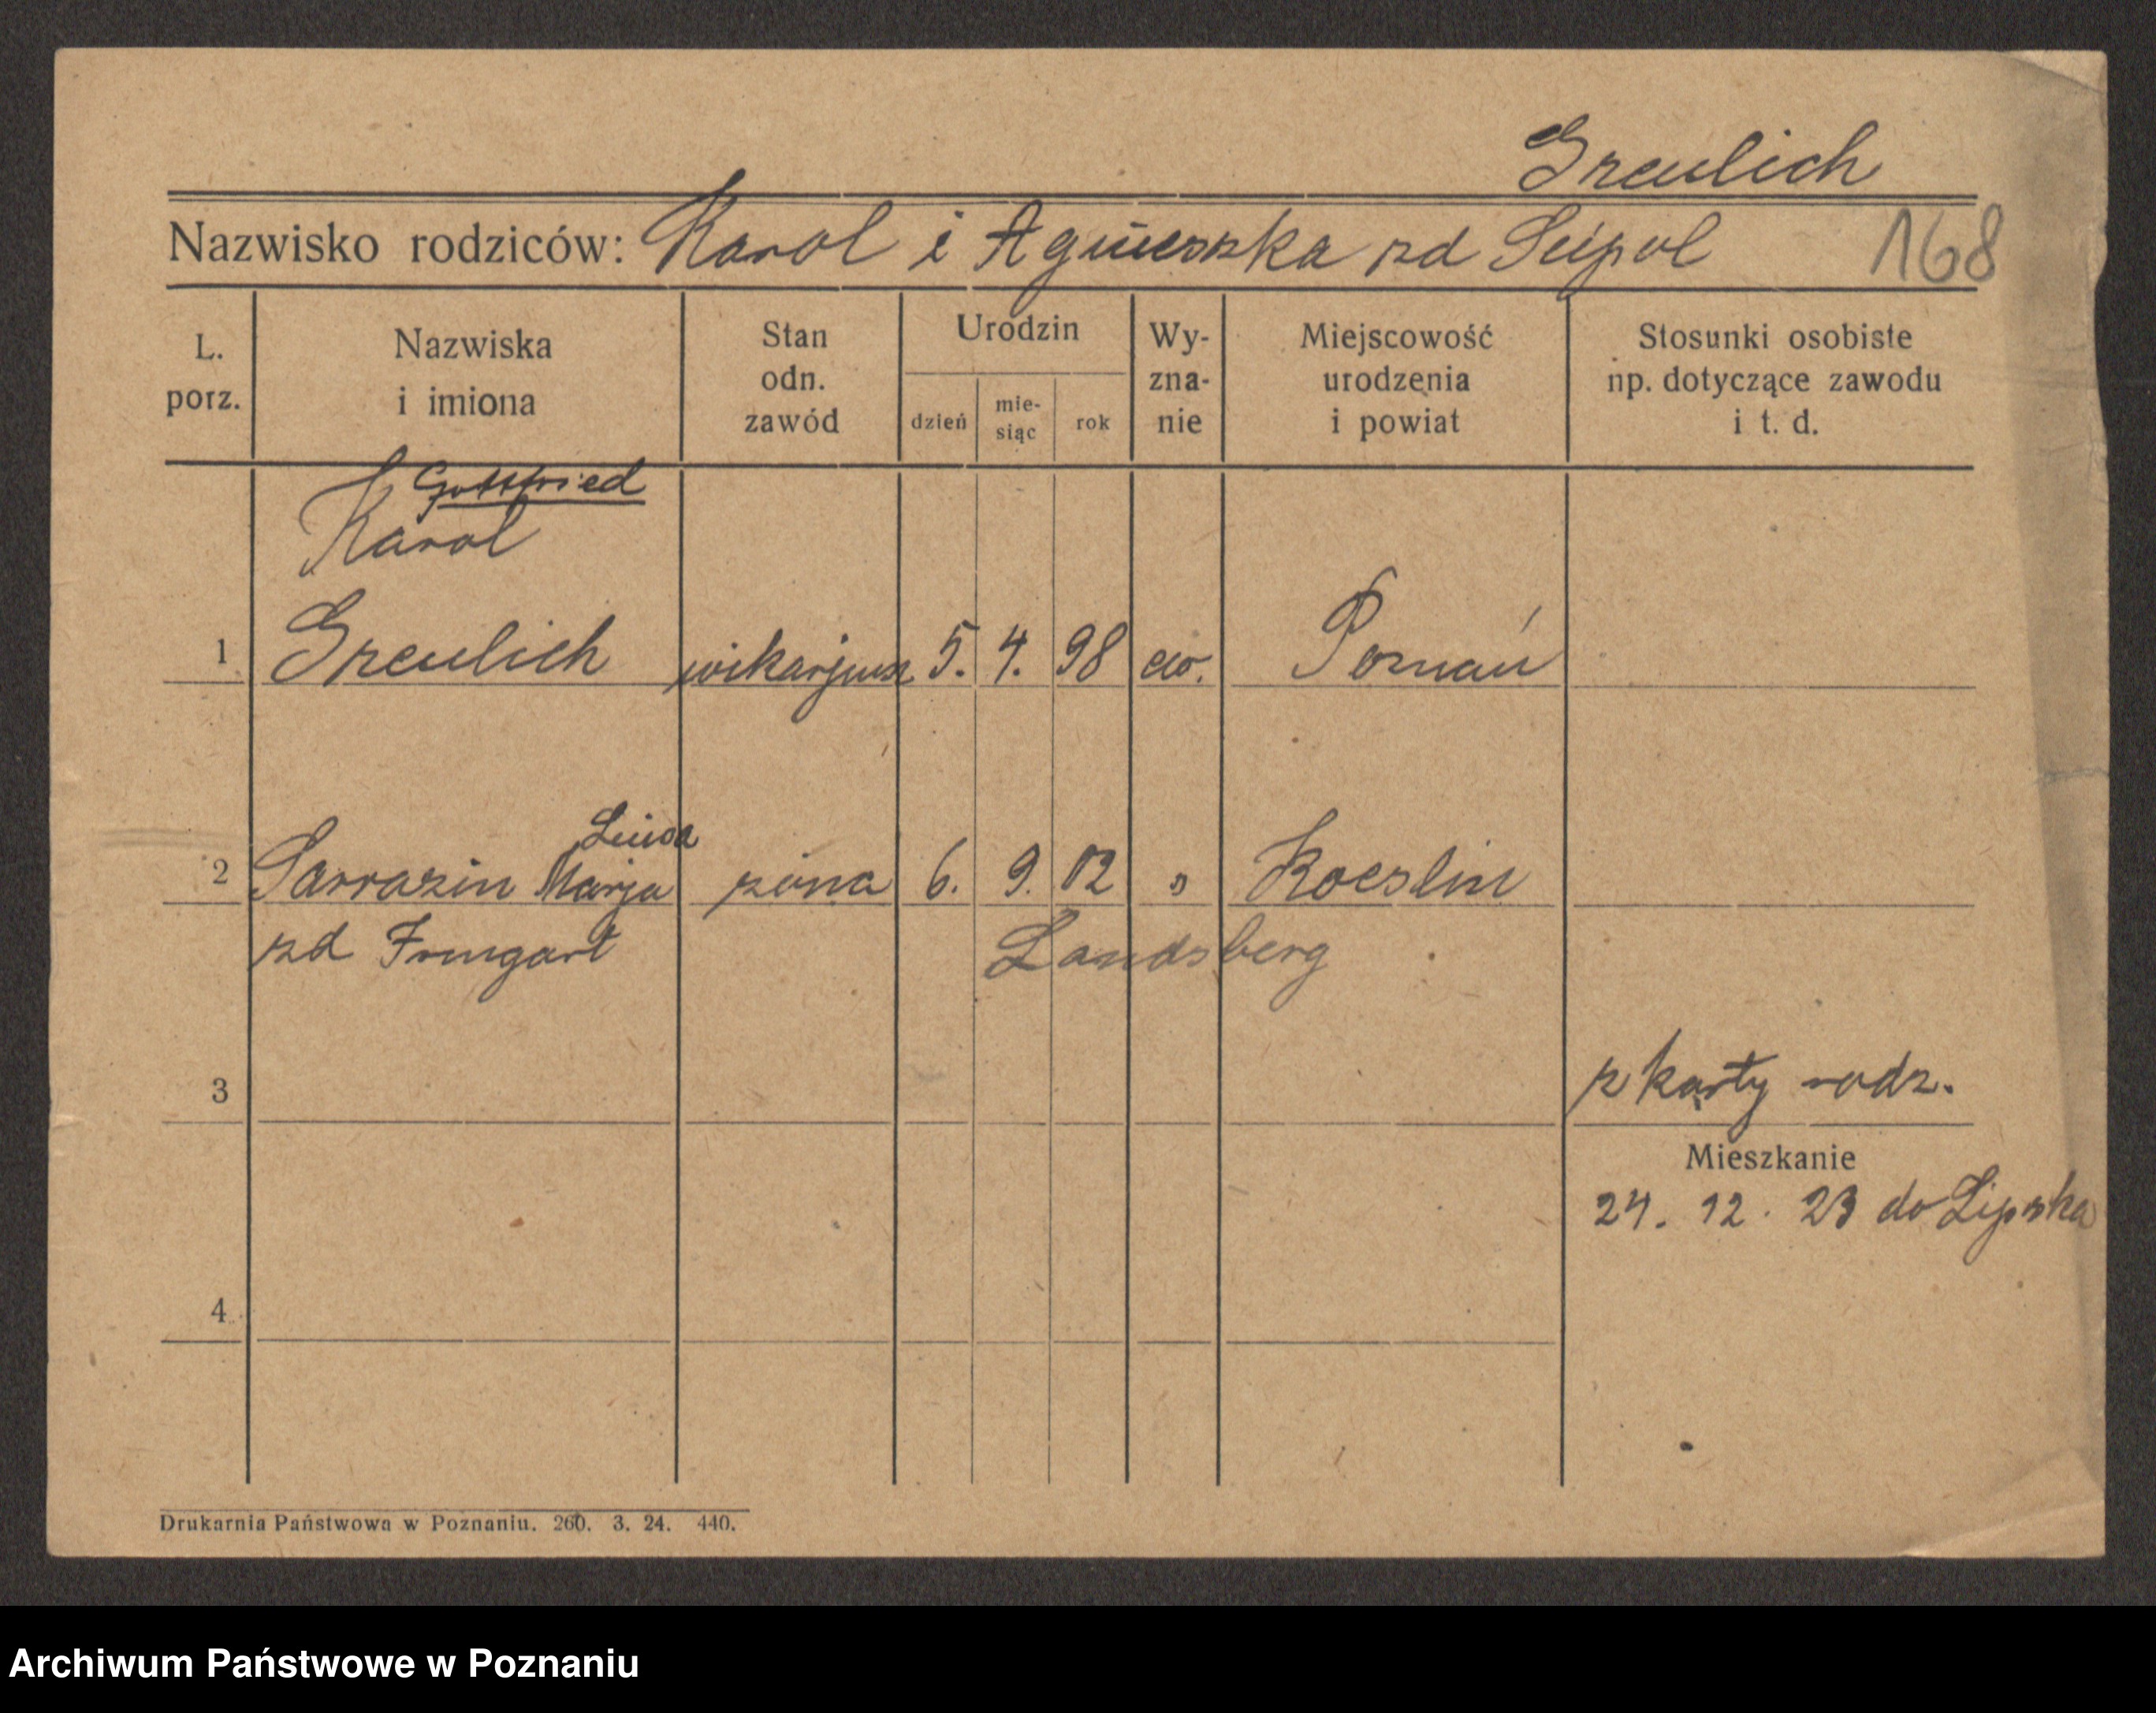 Greulich
Nazwisko rodziców: Karol i Agnieszka zd Seipol
168
L. porz.
Nazwiska i imiona
Stan odn. zawód
Urodzin
dzień
mie-siąc
rok
Wy-zna-nie
Miejscowość urodzenia i powiat
Stosunki osobiste np. dotyczące zawodu i t. d.
Gottfried
Karol
1 Greulich wikarjusz 5. 4. 98 ew. Poznań
Luisa
2 Sarrazin Marja żona 6. 9. 02 " Koeslin
zd Irmgart Landsberg
3 z karty rodz.
Mieszkanie
24. 12. 23 do Lipska
4
Drukarnia Państwowa w Poznaniu. 260. 3. 24. 440.
Archiwum Państwowe w Poznaniu